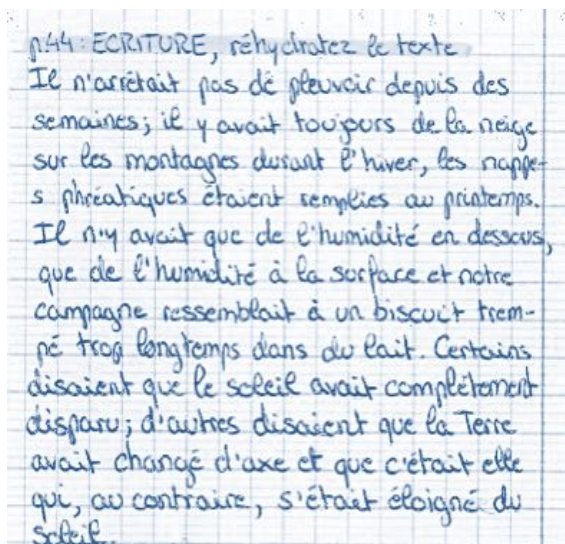 p.44 : ECRITURE, réhydratez le texte
Il n'arrêtait pas de pleuvoir depuis des
semaines ; il y avait toujours de la neige
sur les montagnes durant l'hiver, les nappe-
s phréatiques étaient remplies au printemps.
Il n'y avait que de l'humidité en dessous,
que de l'humidité à la surface et notre
campagne ressemblait à un biscuit trem-
pé trop longtemps dans du lait. Certains
disaient que le soleil avait complètement
disparu ; d'autres disaient que la Terre
avait changé d'axe et que c'était elle
qui, au contraire, s'était éloigné du
soleil.